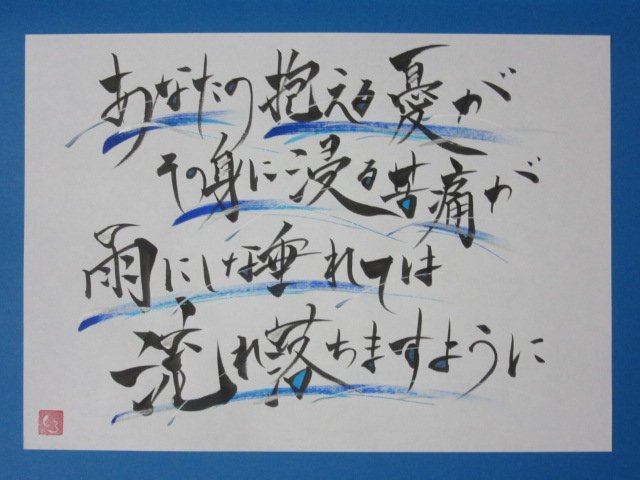 あなたの抱える憂が
その身に浸る苦痛が
雨にしな垂れては
流れ落ちますように